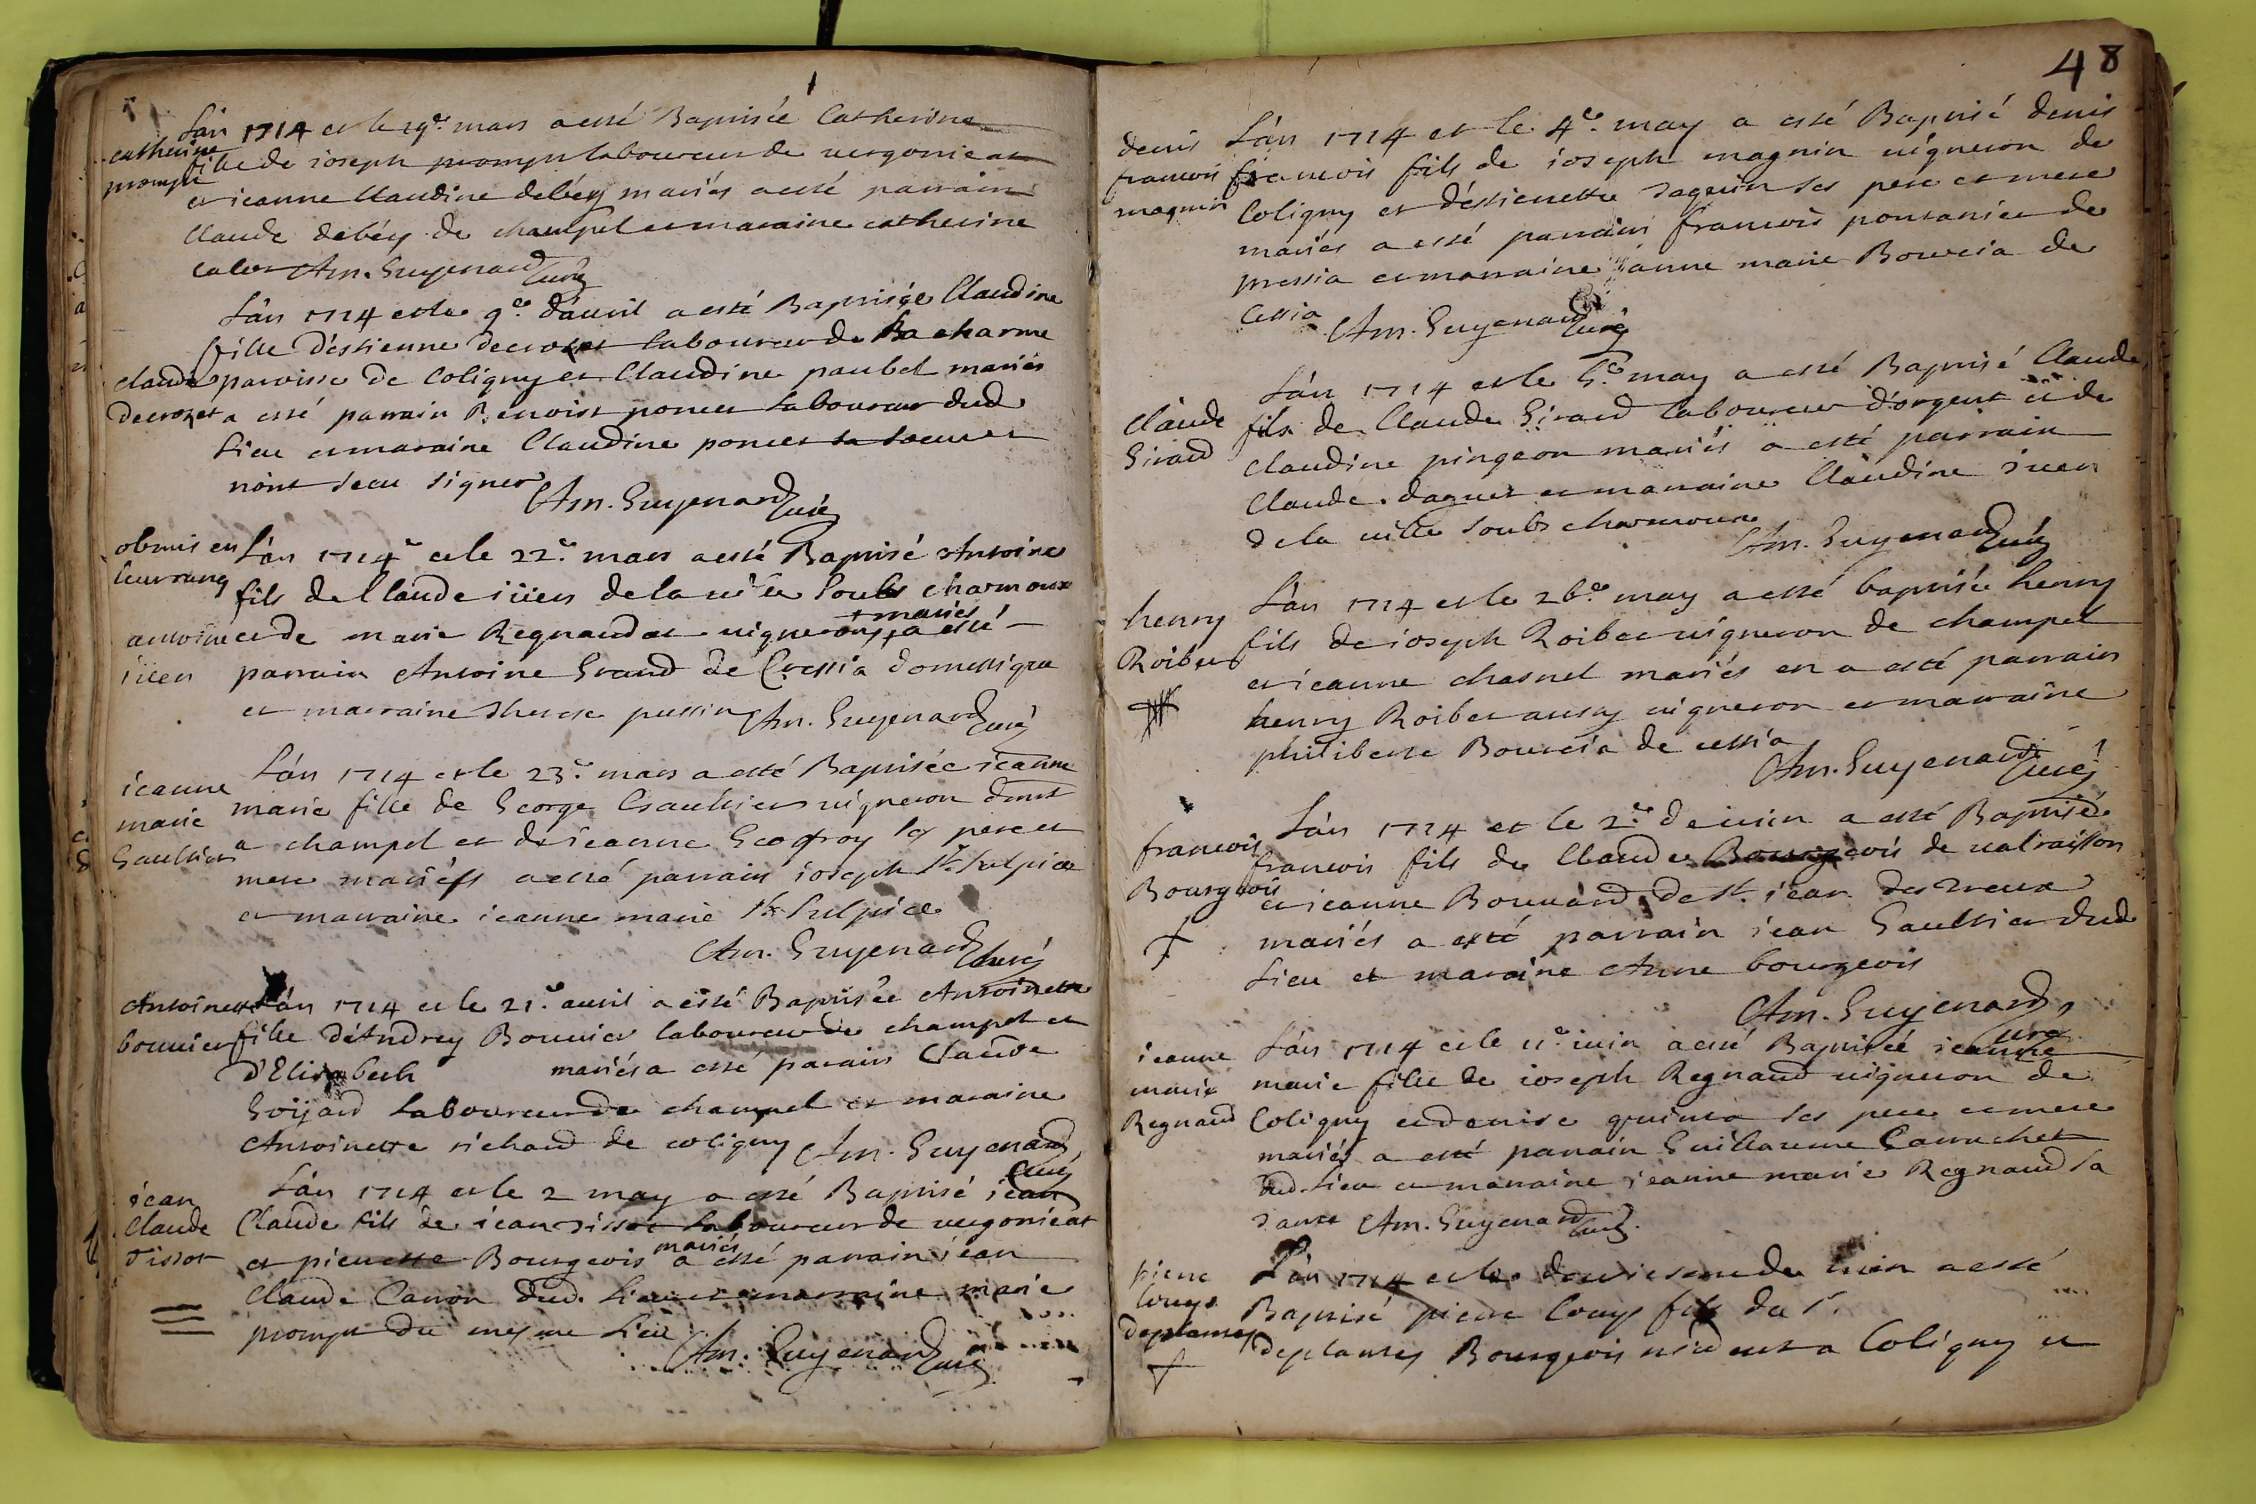 catherine
prompt
L'an 1714 et le 19e. mars a esté Baptisée Catherine
fille de ioseph prompt laboureur de uergonieat
et ieanne Claudine debéy mariés a esté parrain
Claude debéy de champel et maraine catherine
Am. Guyenard Curé
L'an 1714 et le 9e. d'auril a esté Baptisée Claudine
fille d'éstienne decrozet laboureur de la charme
Claudine
decrozet
parroisse de Coligny et Claudine paubel mariés
a esté parrain Benoist poncet laboureur dud
lieu et maraine Claudine poncet sa soeur et
n'ont sceu signer Am. Guyenard Curé
obmis en
leur rang
L'an 1714e et le 22e. mars a esté Baptisé Antoine
fils de Claude iüen de la uille soubs charmoux
antoine
iüen
et de marie Regnaudat uignerons + mariés + a esté
parrain Antoine Grand de Cressia domestique
et marraine therese pussin Am. Guyenard Curé
ieanne
marie
Gaultier
L'an 1714 et le 23e. mars a esté Baptisée ieanne
marie fille de George Gaultier uigneron dmt
a champel et de ieanne Geofroy ses pere et
mere mariés a esté parrain ioseph St. Sulpice
et marraine ieanne marie St Sulpice
Am. Guyenard Curé
Antoinette
bouuier
L'an 1714 et le 21e. auril a esté Baptisée Antoinette
fille d'Andrey Bouuier laboureur de champel et
d'Elisabeth mariés a esté parain Claude
Goijard laboureur de champel et maraine
Antoinette richard de coligny Am. Guyenard
Curé
iean
Claude
Tissot
L'an 1714 et le 2 may a esté Baptisé iean
Claude fils de iean tissot laboureur de uergonieat
et pierrette Bourgeois mariés a esté parrain iean
Claude Canon dud. lieu et marraine marie
prompt du mesme lieu
Am. Guyenard Curé
48
denis
francois
magnin
L'an 1714 et le 4e. may a esté Baptisé denis
francois fils de ioseph magnin uigneron de
Coligny et d'éstienette Jaquin ses pere et mere
mariés a esté parrain francois pontanier de
pressia et marraine ianne marie Bourcia de
Cessia Am. Guyenard Curé
Claude
Girard
L'an 1714 et le 5e may a esté Baptisé Claude
fils de Claude Girard laboureur d'orgent et de
Claudine pingeon mariés a esté parrain
Claude daguet et marraine Claudine iuen
de la uille soubs charmoux
Am. Guyenard Curé
henry
Roibet
L'an 1714 et le 26e. may a esté baptisée henry
fils de ioseph Roibet uigneron de champel
et ieanne chasnel mariés en a esté parrain
henry Roibet aussy uigneron et marraine
philiberte Bourcia de cessia
Am. Guyenard Curé
francois
Bourgeois
L'an 1714 et le 2e. de iuin a esté Baptisé
francois fils de Claude Bourgeois de ualraisson
et ieanne Bouuard de St. iean des treux
mariés a esté parrain iean Gaultier dud
lieu et maraine Anne bourgeois
Am. Guyenard
Curé
ieanne
marie
Regnaud
L'an 1714 et le 11e iuin a esté Baptisée ieanne
marie fille de ioseph Regnaud uigneron de
Coligny et denise quinta ses pere et mere
mariés a esté parrain Guillaume Camuchet
dud. lieu et marraine ieanne marie Regnaud sa
tante Am. Guyenard Curé.
pierre
louys
deplantey
L'an 1714 et le derniere de iuin a esté
Baptisé pierre louys fils du sr.
deplantey Bourgeois résident a Coligny et